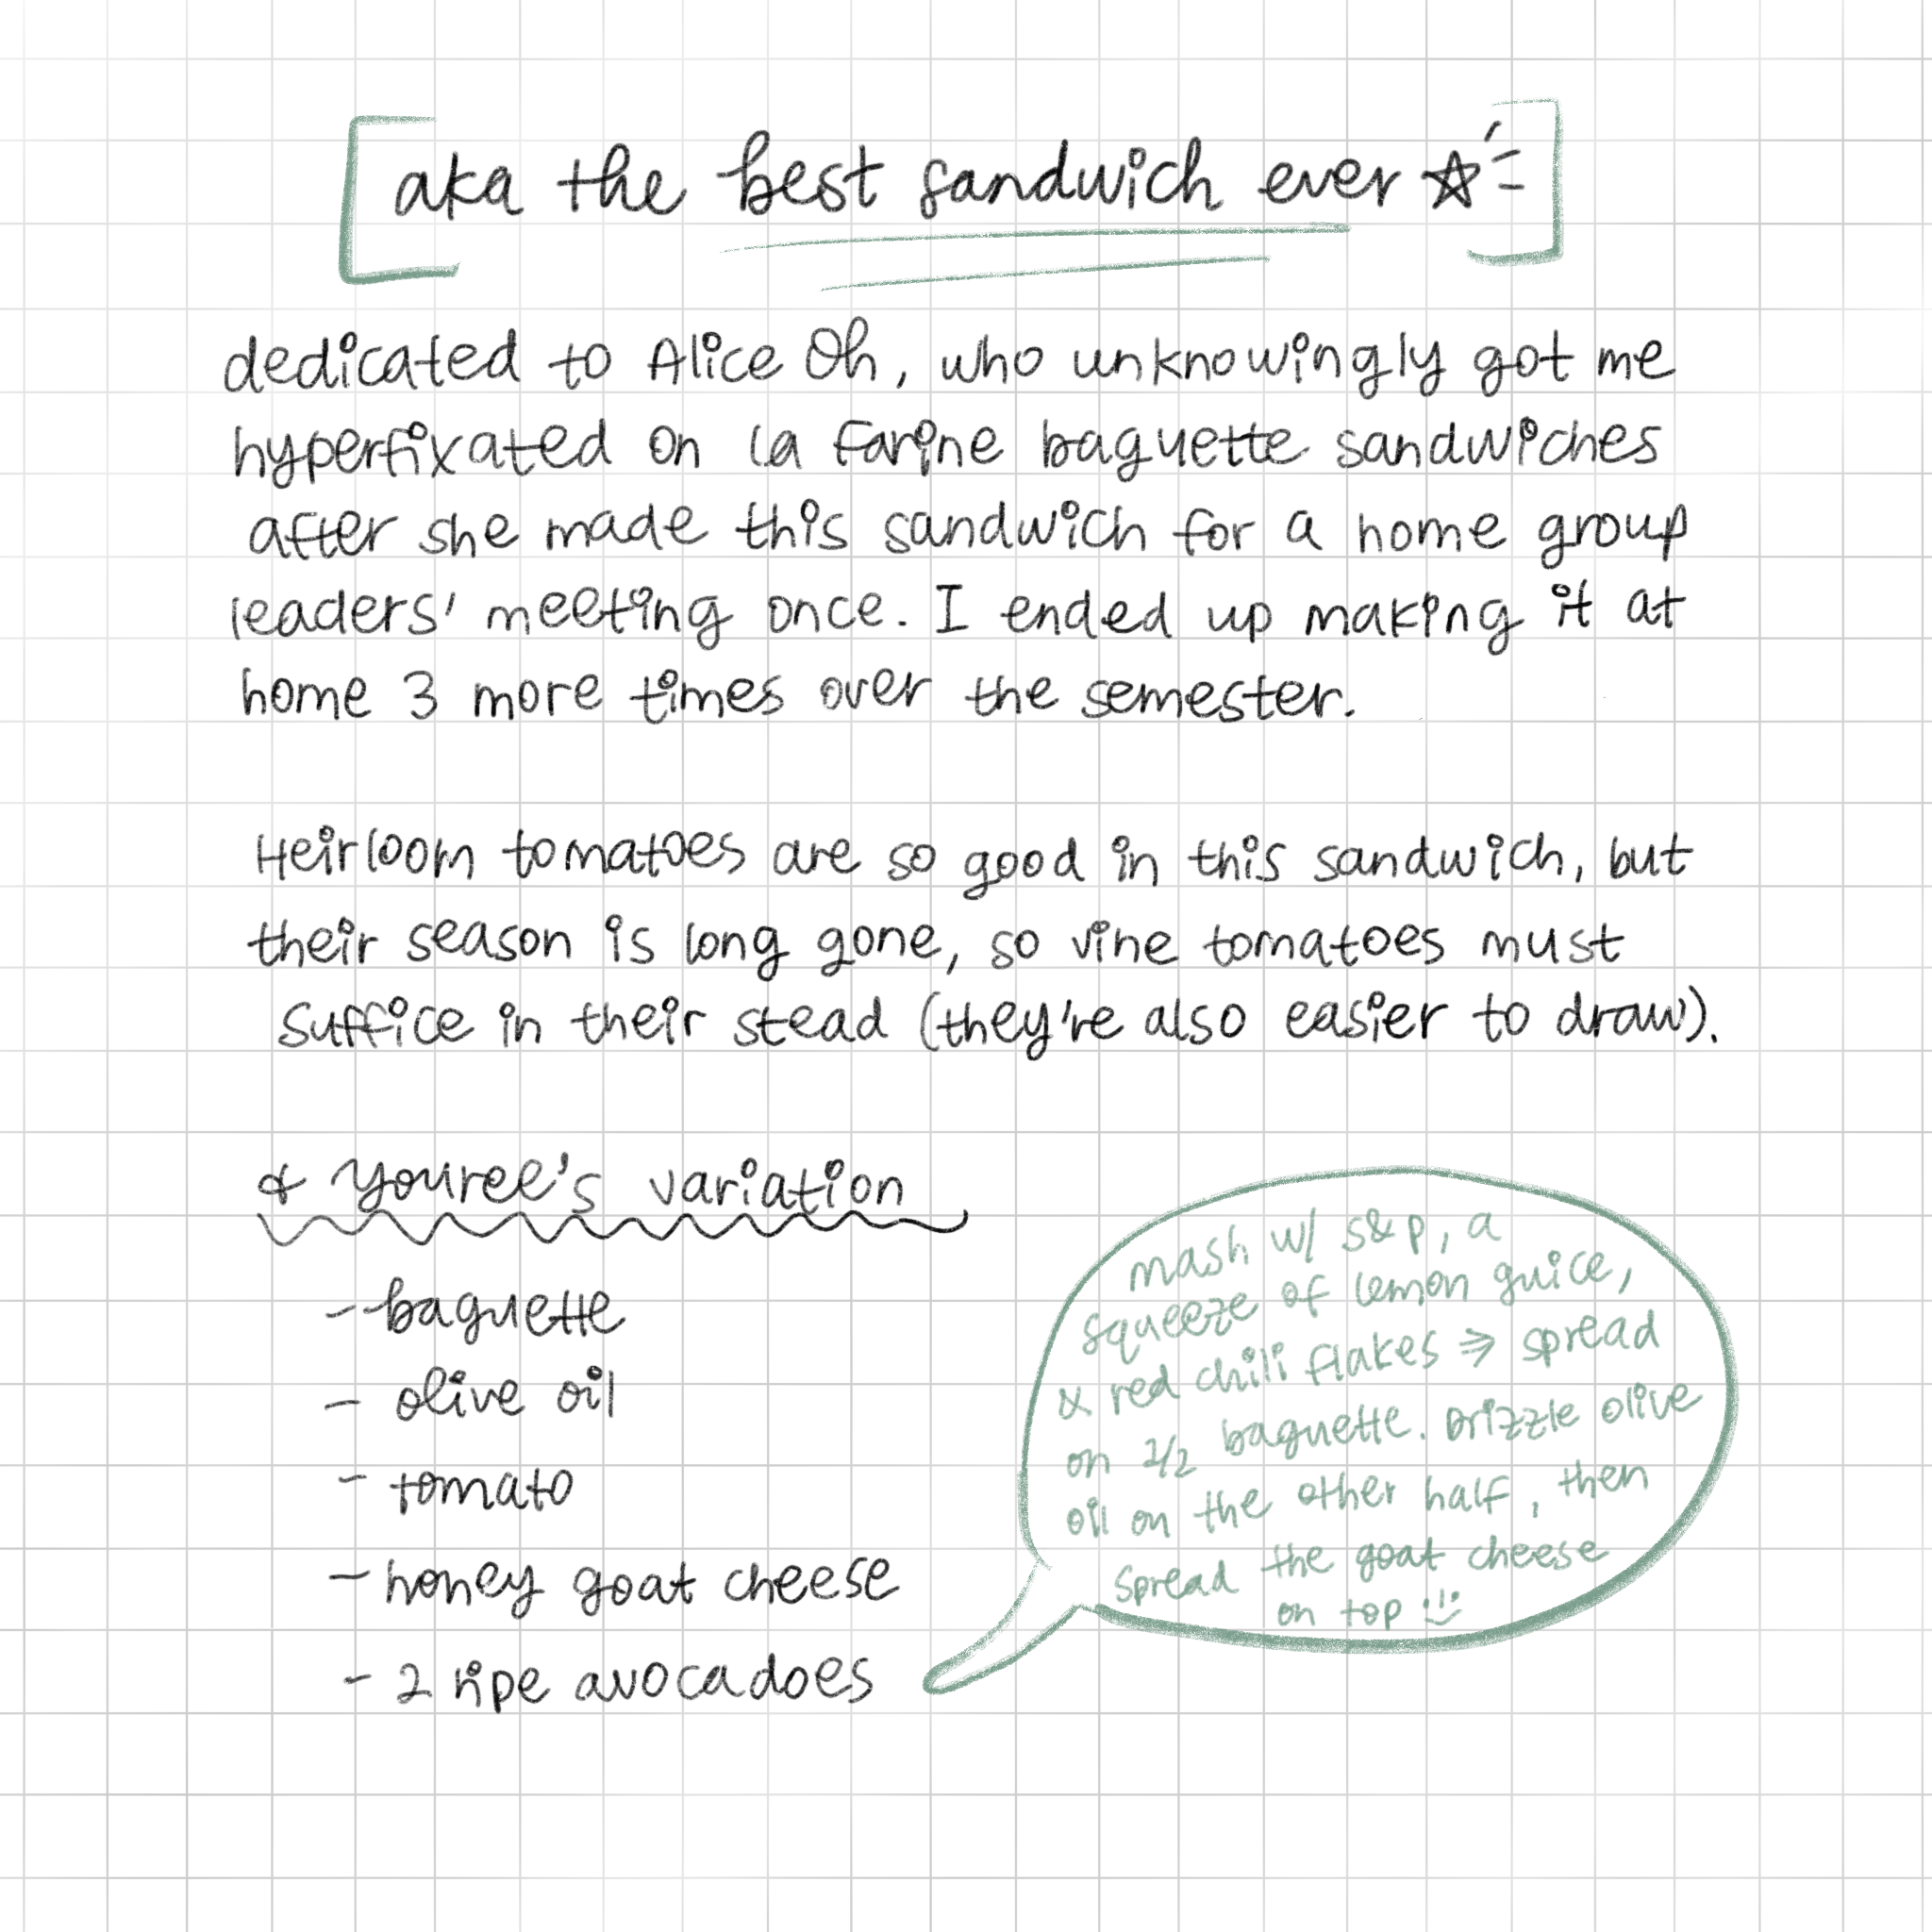 [aka the best sandwich ever ☆]
dedicated to Alice Oh, who unknowingly got me
hyperfixated on la farine baguette sandwiches
after she made this sandwich for a home group
leaders' meeting once. I ended up making it at
home 3 more times over the semester.
Heirloom tomatoes are so good in this sandwich, but
their season is long gone, so vine tomatoes must
suffice in their stead (they're also easier to draw).
& youree's variation
- baguette
- olive oil
- tomato
- honey goat cheese
- 2 ripe avocadoes
mash w/ s&p, a
squeeze of lemon guice,
& red chili flakes => spread
on 1/2 baguette. Drizzle olive
oil on the other half, then
spread the goat cheese
on top :)